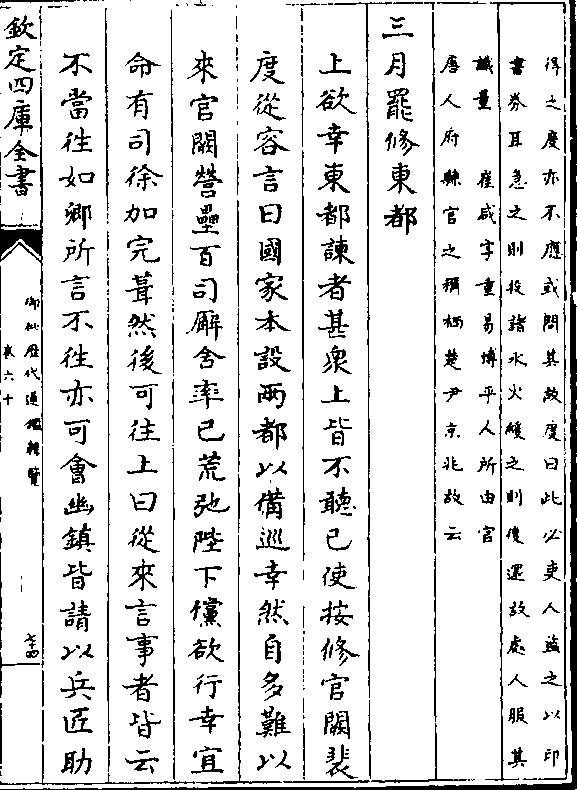 得之度亦不應或問其故度曰此必吏人盜之以印
書券耳急之則投諸水火緩之則復還故處人服其
識量 崔咸字重易博平人所由官
唐人府縣官之稱栖楚尹京兆故云
三月罷修東都
上欲幸東都諫者甚衆上皆不聽已使按修官闕裴
度從容言曰國家本設兩都以備巡幸然自多難以
來官闕營壘百司廨舍率已荒弛陛下儻欲行幸宜
命有司徐加完葺然後可往上曰從來言事者皆云
不當往如卿所言不往亦可會幽鎮皆請以兵匠助
欽定四庫全書
御批歷代通鑑輯覽
卷六十
七四